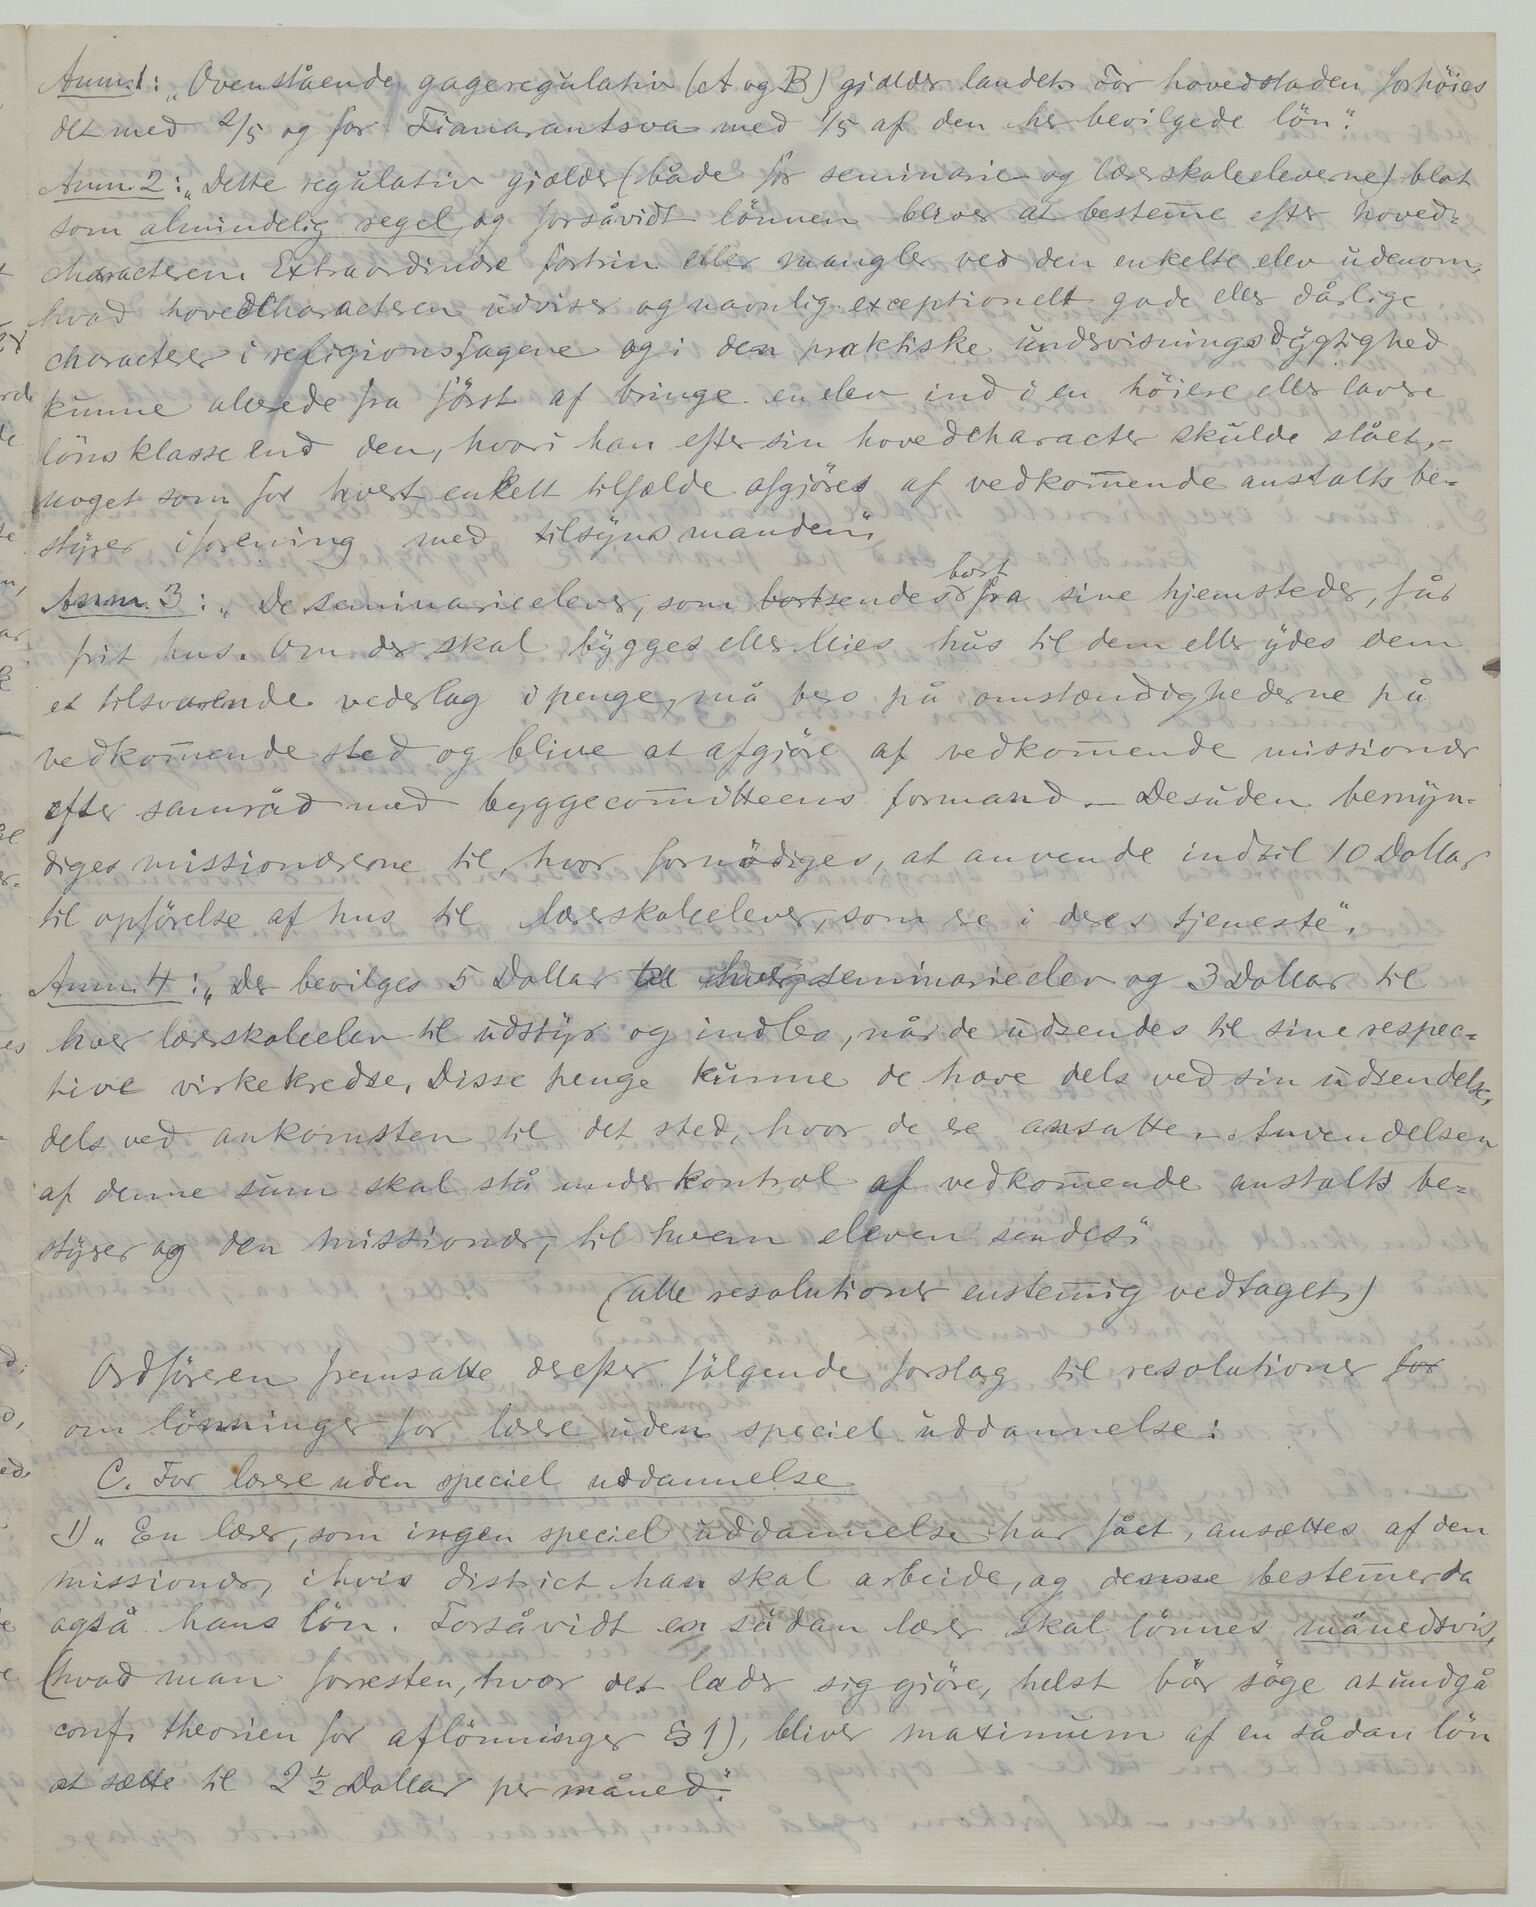 Anm. 1: „Ovenstående gageregulativ (A og B) gjælder landet. För hovedstaden forhöies
det med 2/5 og for Fianarantsoa med 1/5 af den her bevilgede lön."
Anm. 2: „Dette regulativ gjælder (både for seminarie- og lærerskoleeleverne) blot
som almindelig regel, og forsåvidt lönnen bliver at bestem̄e efter hoved-
characteren. Extraordinære fortrin eller mangler ved den enkelte elev udenom,
hvad hovedcharacteren udviser og navnlig exceptionelt gode eller dårlige
characterer i religionsfagene og i den praktiske undervisningsdygtighed
kunne allerede fra först af bringe en elev ind i en höiere eller lavere
lönsklasse end den, hvori han efter sin hovedcharacter skulde stået, –
noget som for hvert enkelt tilfælde afgjöres af vedkom̄ende anstalts be-
styrer i forening med tilsynsmanden."
Anm. 3: „De seminarieelever, som bortsendes bort fra sine hjemsteder, får
frit hus. Om der skal bygges eller leies hus til dem eller ydes dem
et tilsvarende vederlag i penge, må bero på omstændighederne på
vedkom̄ende sted og blive at afgjöre af vedkom̄ende missionær
efter samråd med byggecom̄itteens formand. – Desuden bemyn-
diges missionærerne til, hvor fornödiges, at anvende indtil 10 Dollar
til opförelse af hus til lærerskoleelever, som ere i deres tjeneste".
Anm. 4: „Der bevilges 5 Dollar til hver seminarieelev og 3 Dollar til
hver lærerskoleelev til udstyr og indbo, når de udsendes til sine respec-
tive virkekredse. Disse penge kunne de have dels ved sin udsendelse,
dels ved ankomsten til det sted, hvor de ere ansatte. – Anvendelsen
af denne sum skal stå under kontrol af vedkom̄ende anstalts be-
styrer og den missionær, til hvem eleven sendes."
(alle resolutioner enstem̄ig vedtaget.)
Ordföreren fremsatte derefter fölgende forslag til resolutioner for
om lönninger for lærere uden speciel uddannelse:
C. For lærere uden speciel uddannelse
1) „En lærer, som ingen speciel uddannelse har fået, ansættes af den
missionær, i hvis district han skal arbeide, og denne bestem̄er da
også hans lön. Forsåvidt en sådan lærer skal lönnes månedsvis,
(hvad man forresten, hvor det lader sig gjöre, helst bör söge at undgå
conf. theorien for aflönninger § 1), bliver maximum af en sådan lön
at sætte til 2 ½ Dollar per måned."